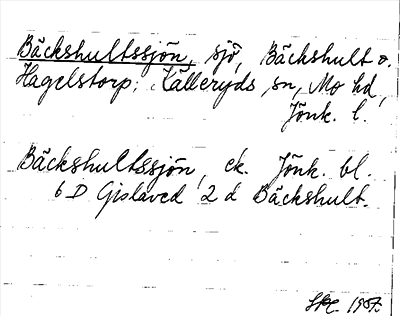 Bäckshultssjön, sjö, Bäckshult o.
Hagelstorp, Källeryds sn, Mo hd,
Jönk. l.
Bäckshultssjön, ek. Jönk. bl.
6 D Gislaved 2 d Bäckshult.
1957.